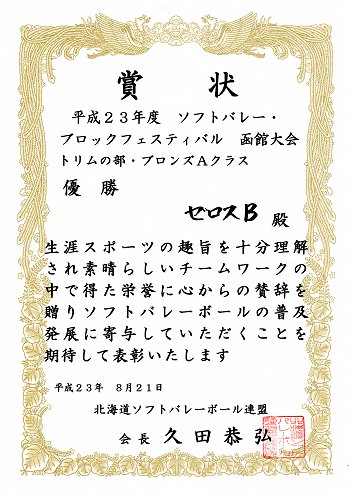 賞状
平成23年度 ソフトバレー・
ブロックフェスティバル 函館大会
トリムの部・ブロンズAクラス
優勝
ゼロスB 殿
生涯スポーツの趣旨を十分理解
され素晴らしいチームワークの
中で得た栄誉に心からの賛辞を
贈りソフトバレーボールの普及
発展に寄与していただくことを
期待して表彰いたします
平成23年 8月21日
北海道ソフトバレーボール連盟
会長 久田恭弘